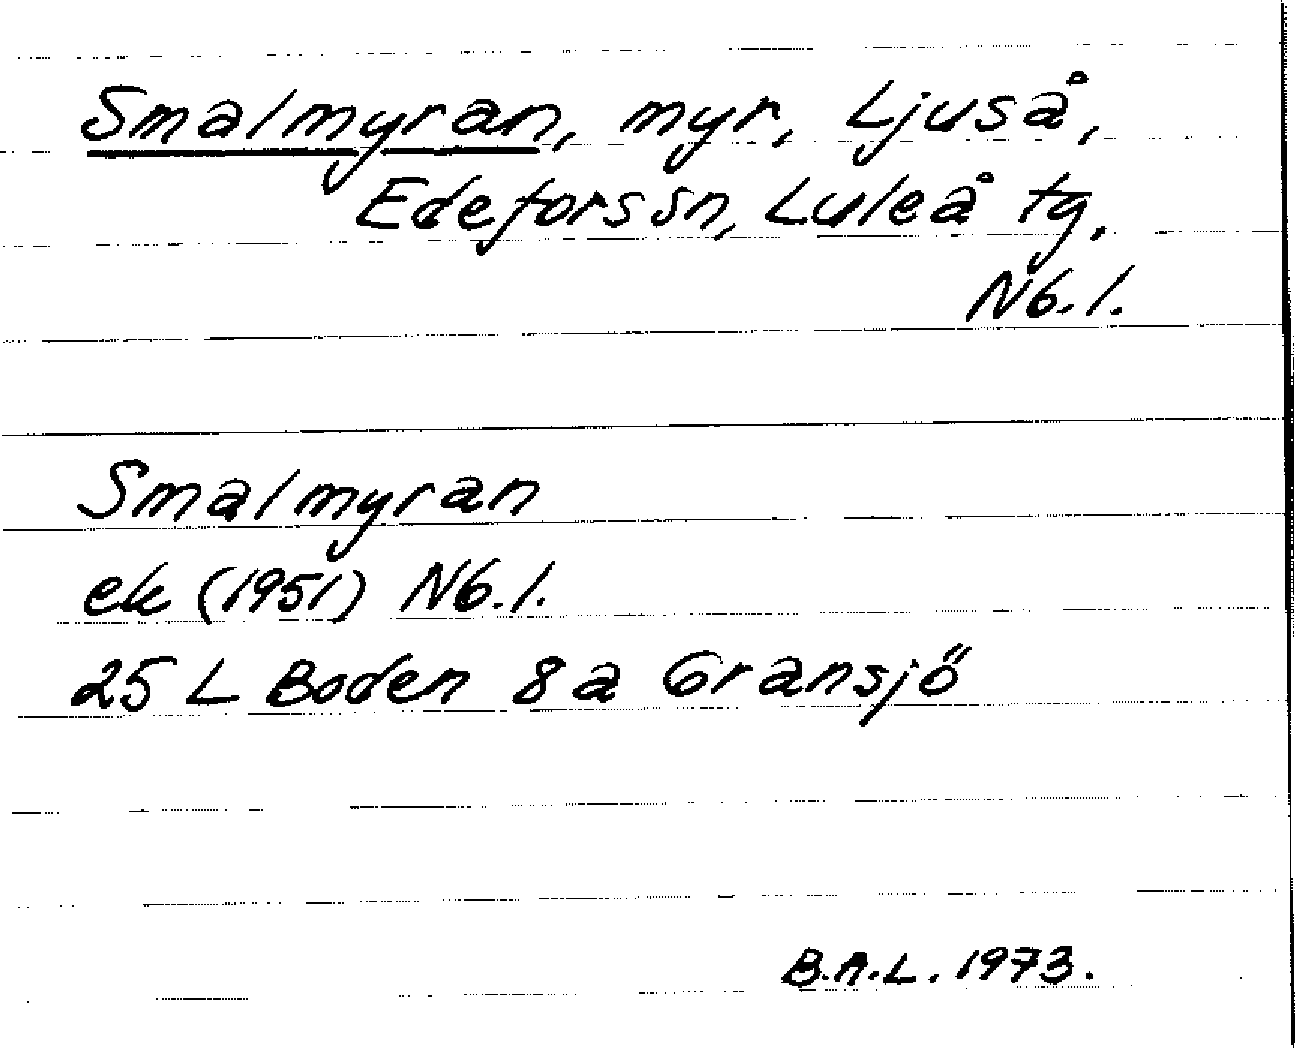 Smalmyran, myr, Ljuså,
Edefors sn, Luleå tg,
Nb. l.
Smalmyran
ek (1951) Nb. l.
25 L Boden 8 a Gransjö
B.A.L. 1973.